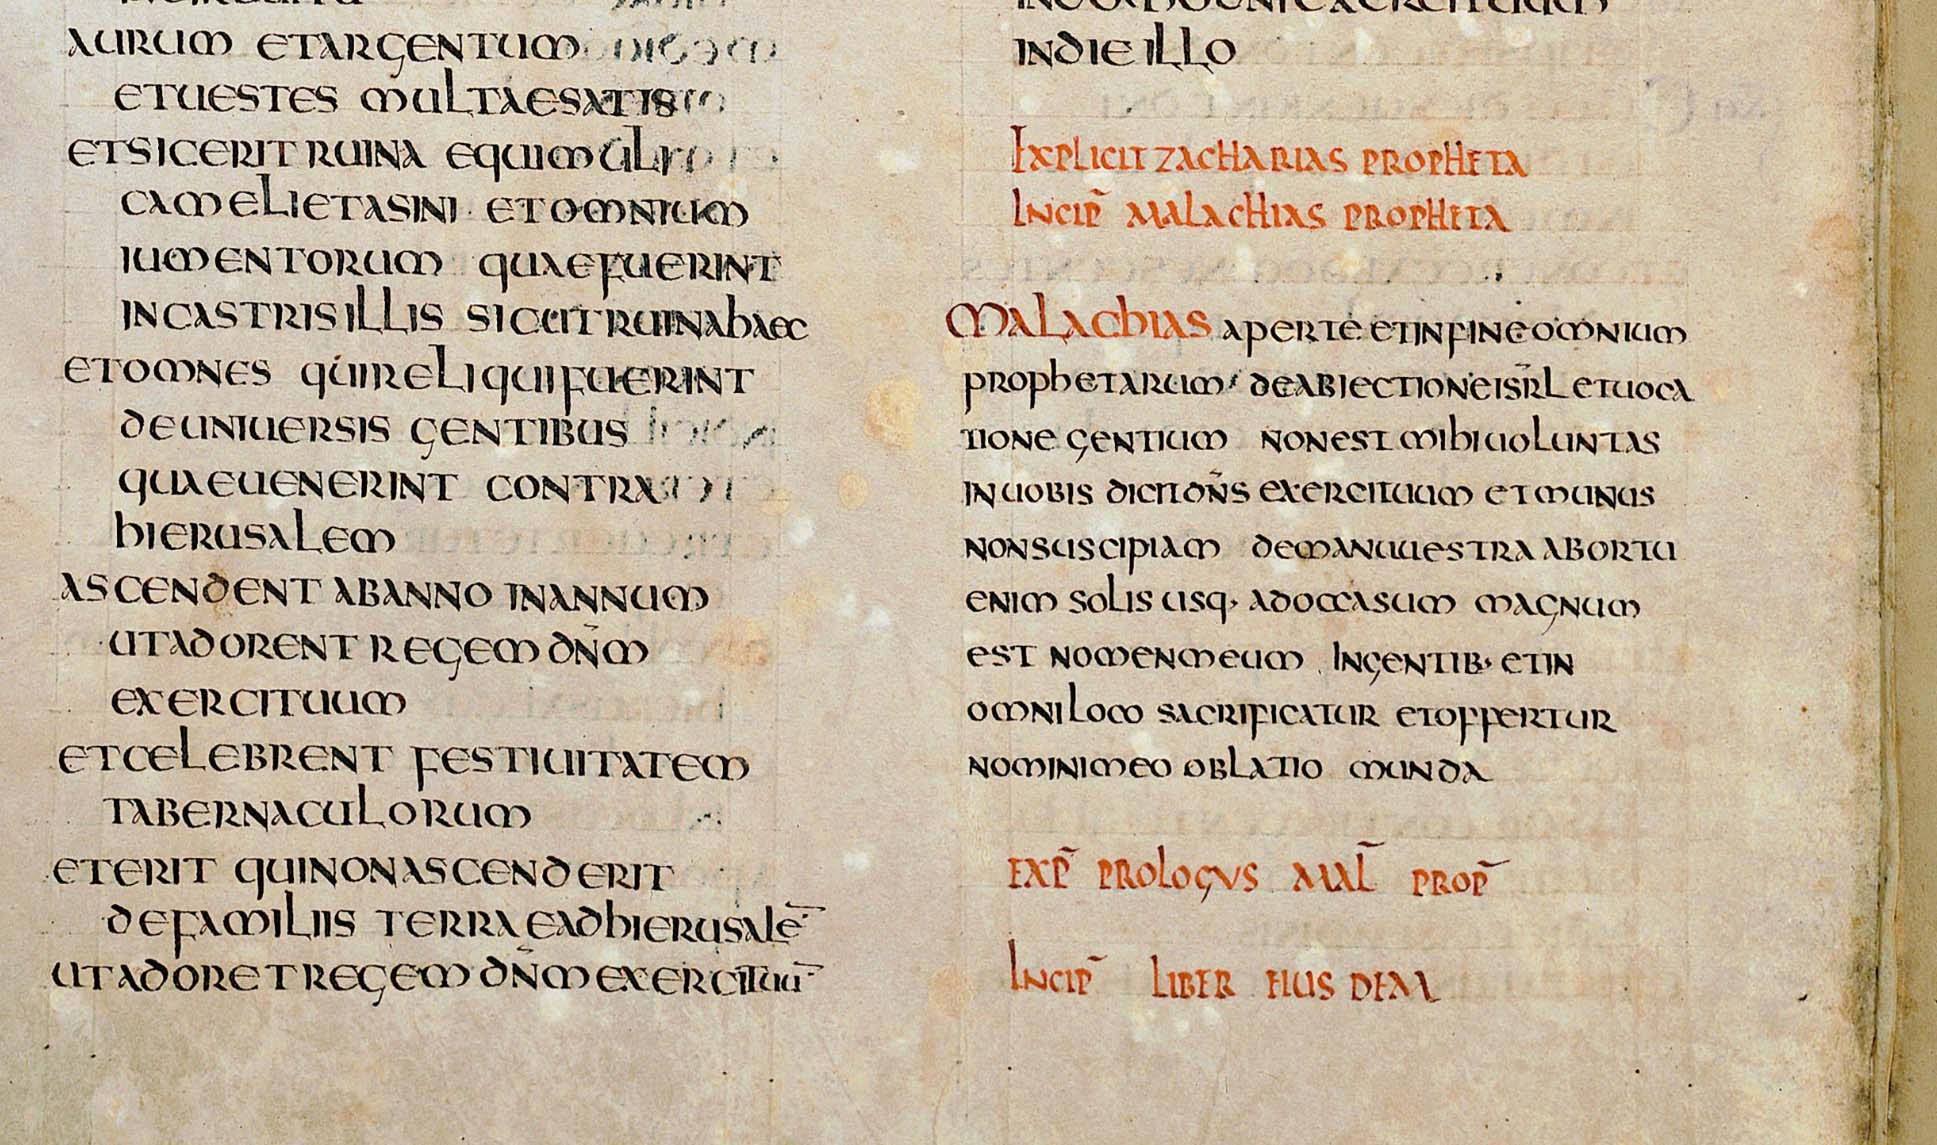 AURUM ET ARGENTUM
ET UESTES MULTAE SATIS
ET SIC ERIT RUINA EQUI MULI
CAMELI ET ASINI ET OMNIUM
IUMENTORUM QUAE FUERINT
IN CASTRIS ILLIS SICUT RUINA HAEC
ET OMNES QUI RELIQUI FUERINT
DE UNIUERSIS GENTIBUS
QUAE UENERINT CONTRA
HIERUSALEM
ASCENDENT AB ANNO IN ANNUM
UT ADORENT REGEM DN̄M
EXERCITUUM
ET CELEBRENT FESTIUITATEM
TABERNACULORUM
ET ERIT QUI NON ASCENDERIT
DE FAMILIIS TERRAE AD HIERUSALĒ
UT ADORET REGEM DN̄M EXERCITUŪ
IN DOMO DN̄I EXERCITUUM
IN DIE ILLO
EXPLICIT ZACHARIAS PROPHETA
INCIP̄ MALACHIAS PROPHETA
MALACHIAS APERTE ET IN FINE OMNIUM
PROPHETARUM DE ABIECTIONE ISR̄L ET UOCA
TIONE GENTIUM NON EST MIHI UOLUNTAS
IN UOBIS DICIT DN̄S EXERCITUUM ET MUNUS
NON SUSCIPIAM DE MANU UESTRA AB ORTU
ENIM SOLIS USQ· AD OCCASUM MAGNUM
EST NOMEN MEUM IN GENTIB· ET IN
OMNI LOCO SACRIFICATUR ET OFFERTUR
NOMINI MEO OBLATIO MUNDA
EXP̄ PROLOGUS MAL̄ PROP̄
INCIP̄ LIBER EIUSDEM